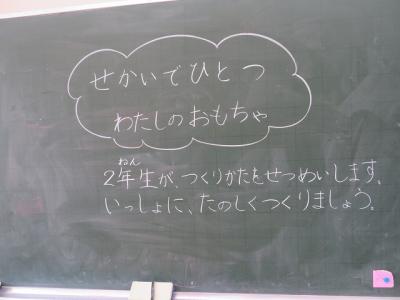 せかいでひとつ
わたしのおもちゃ
ねん
2年生が、つくりかたをせつめいします。
いっしょに、たのしくつくりましょう。